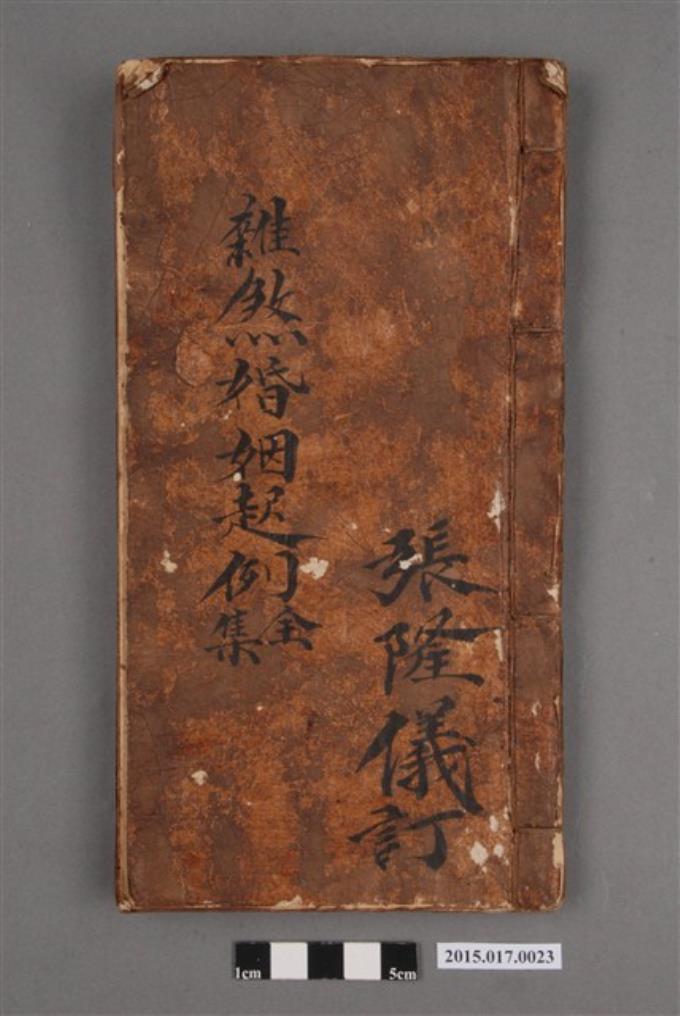 張隆儀訂
雜煞婚姻起例全集
1cm 5cm
2015.017.0023